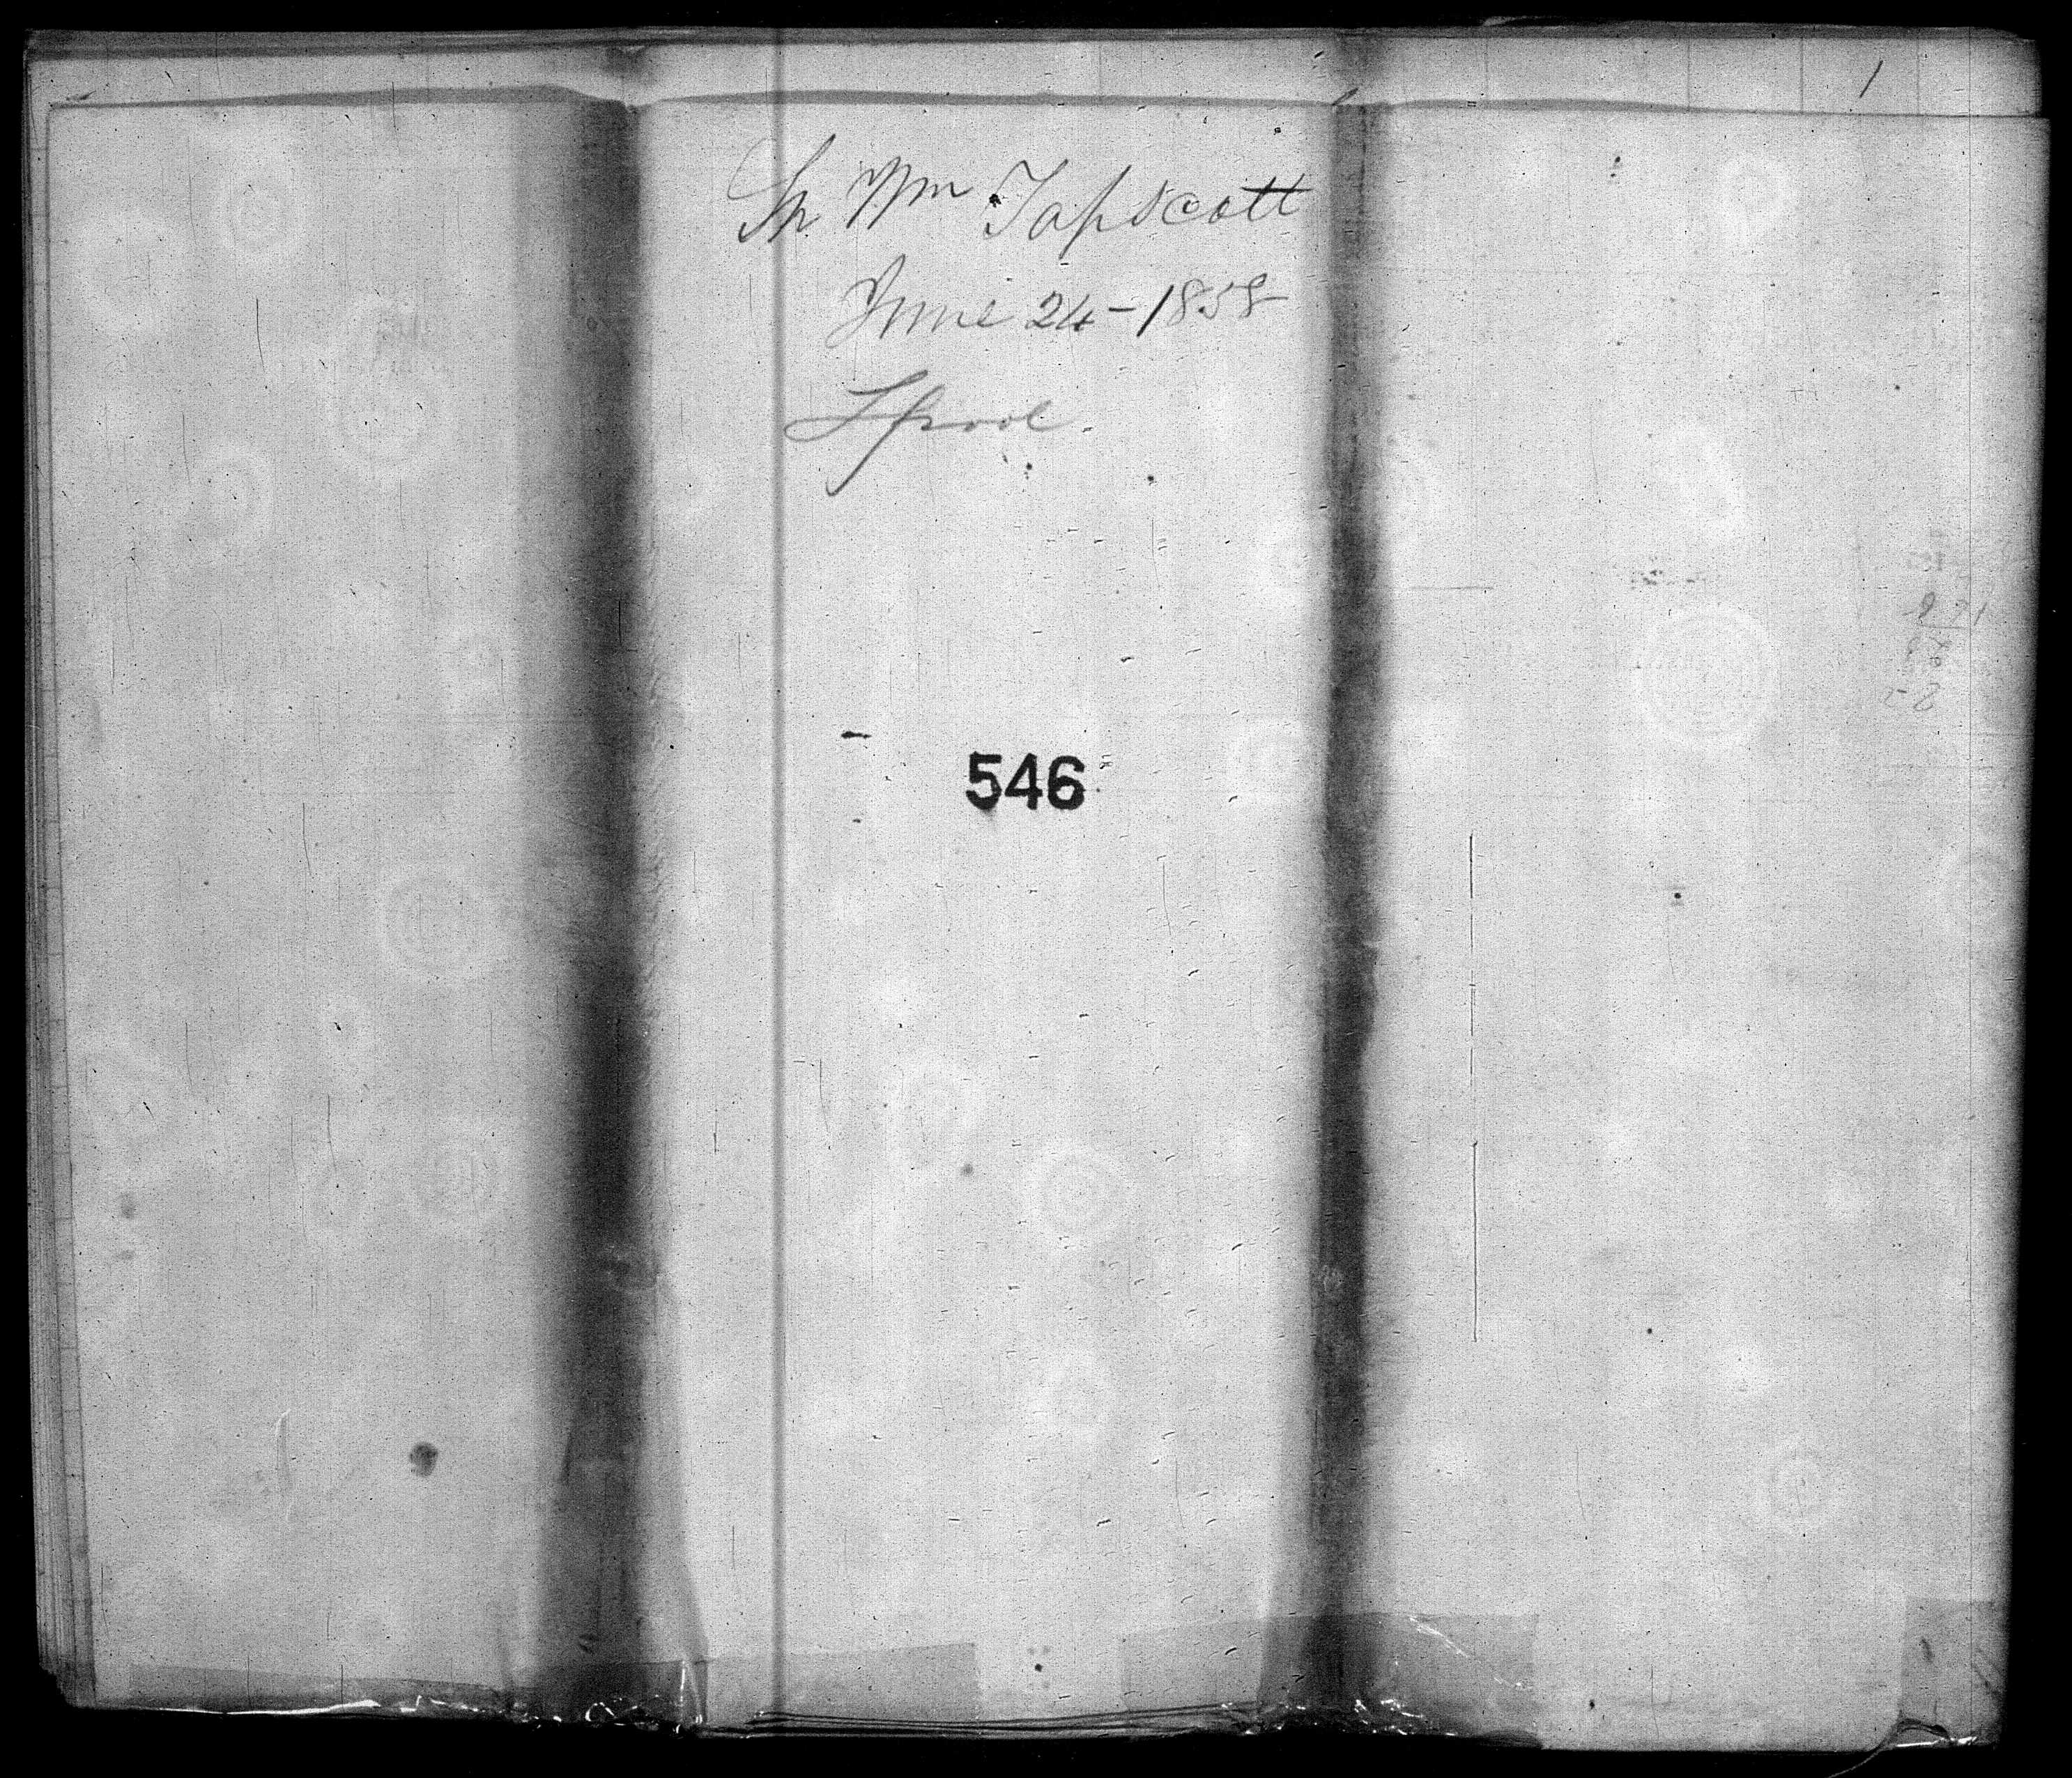 1
Sh Wm Tapscott
June 24-1858
Lpool.
546